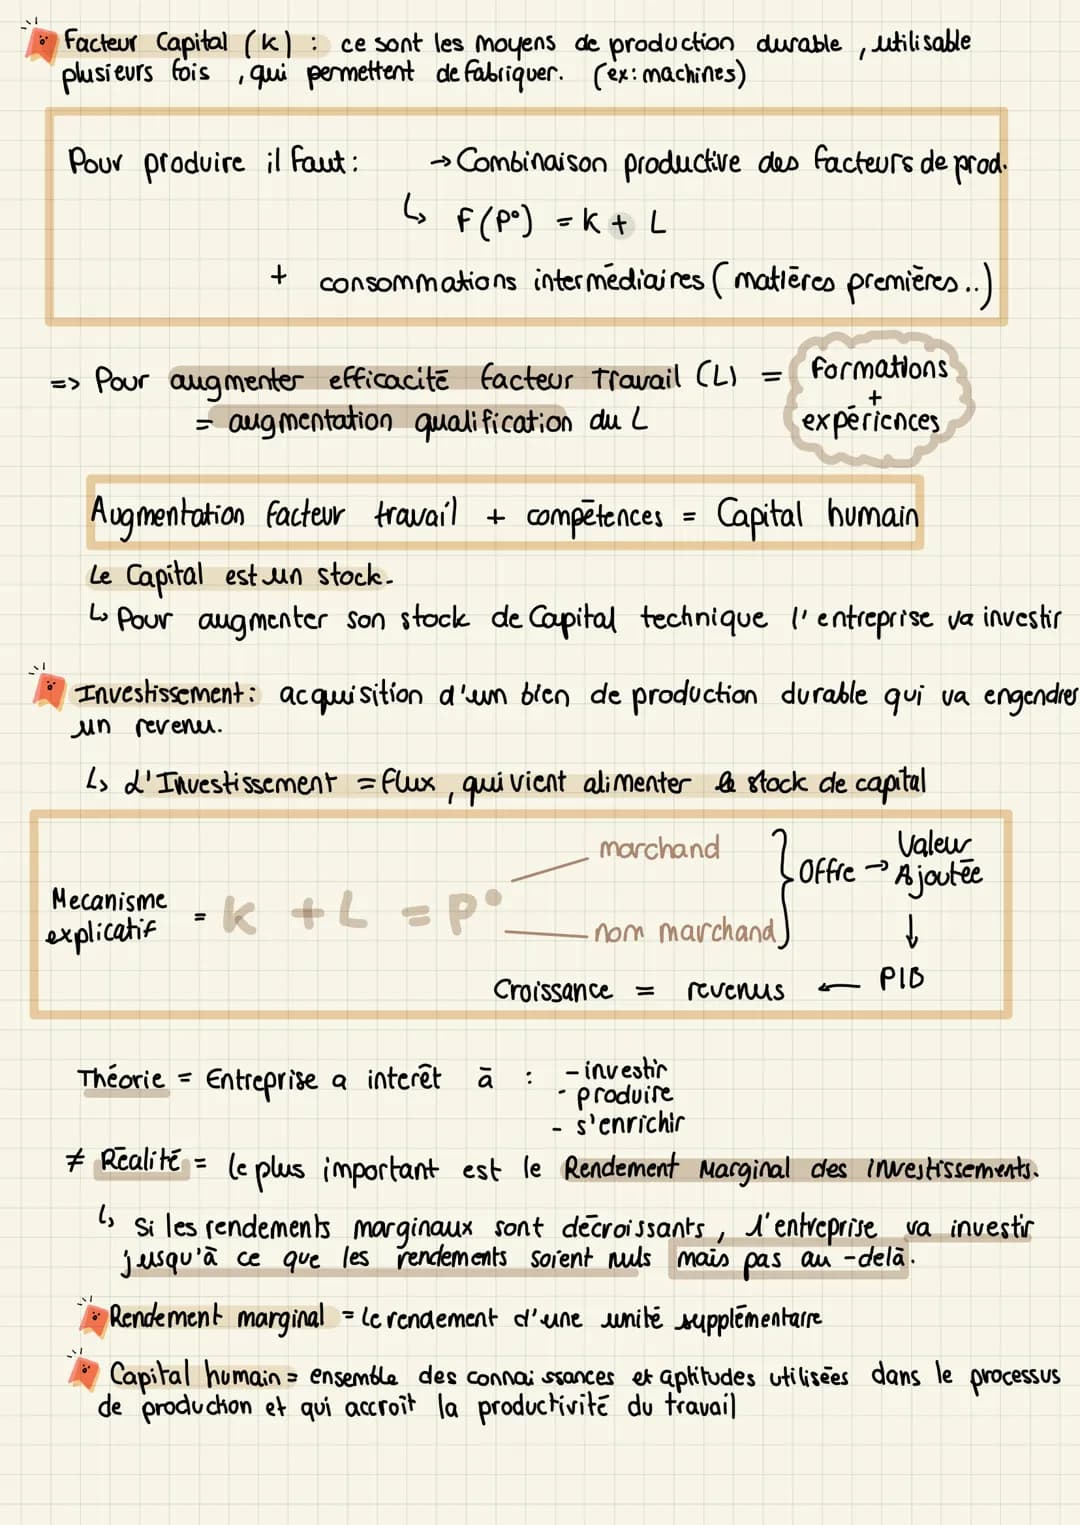 Facteur Capital (K) : ce sont les moyens de production durable, utilisable
plusieurs fois, qui permettent de fabriquer. (ex: machines)
Pour produire il faut : → Combinaison productive des facteurs de prod.
↳ F(P°) = K + L
+ consommations intermédiaires (matières premières..)
=> Pour augmenter efficacité facteur Travail (L) = Formations
+
= augmentation qualification du L expériences
Augmentation facteur travail + compétences = Capital humain
Le Capital est un stock.
↳ Pour augmenter son stock de Capital technique l'entreprise va investir
Investissement : acquisition d'un bien de production durable qui va engendrer
un revenu.
↳ L'Investissement = flux, qui vient alimenter le stock de capital
marchand
Offre → Valeur Ajoutée
Mecanisme explicatif = K + L = P°
nom marchand
↓
Croissance = revenus ← PIB
Théorie = Entreprise a interêt à : - investir
- produire
- s'enrichir
≠ Réalité = le plus important est le Rendement Marginal des investissements.
↳ Si les rendements marginaux sont décroissants, l'entreprise va investir
jusqu'à ce que les rendements soient nuls mais pas au-delà.
Rendement marginal = le rendement d'une unité supplémentaire
Capital humain = ensemble des connaissances et aptitudes utilisées dans le processus
de production et qui accroît la productivité du travail